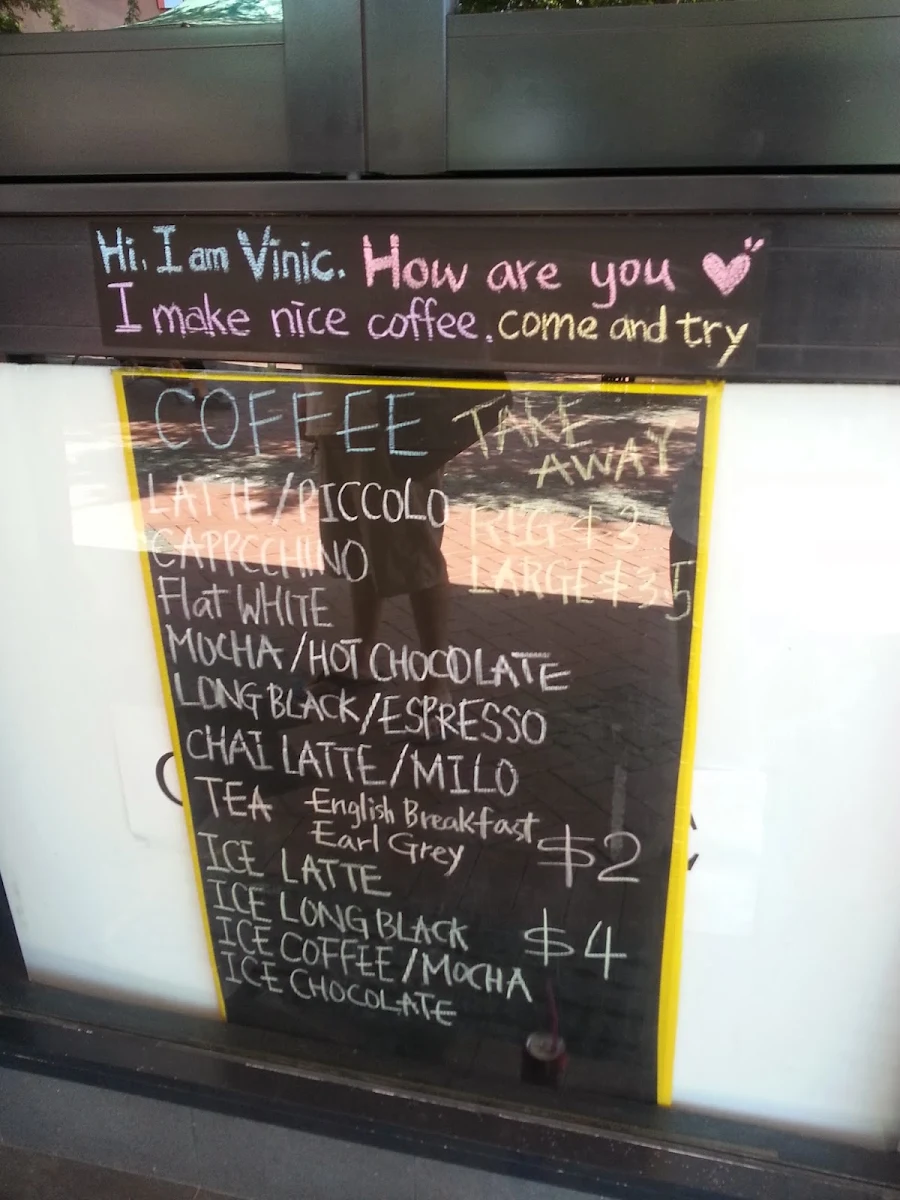 Hi. I am Vinic. How are you
I make nice coffee. come and try
COFFEE TAKE
AWAY
LATTE/PICCOLO REG $ 3
CAPPCCHINO LARGE $ 3.5
Flat WHITE
MOCHA/HOT CHOCOLATE
LONG BLACK/ESPRESSO
CHAI LATTE/MILO
TEA English Breakfast
Earl Grey $2
ICE LATTE
ICE LONG BLACK $4
ICE COFFEE/MOCHA
ICE CHOCOLATE